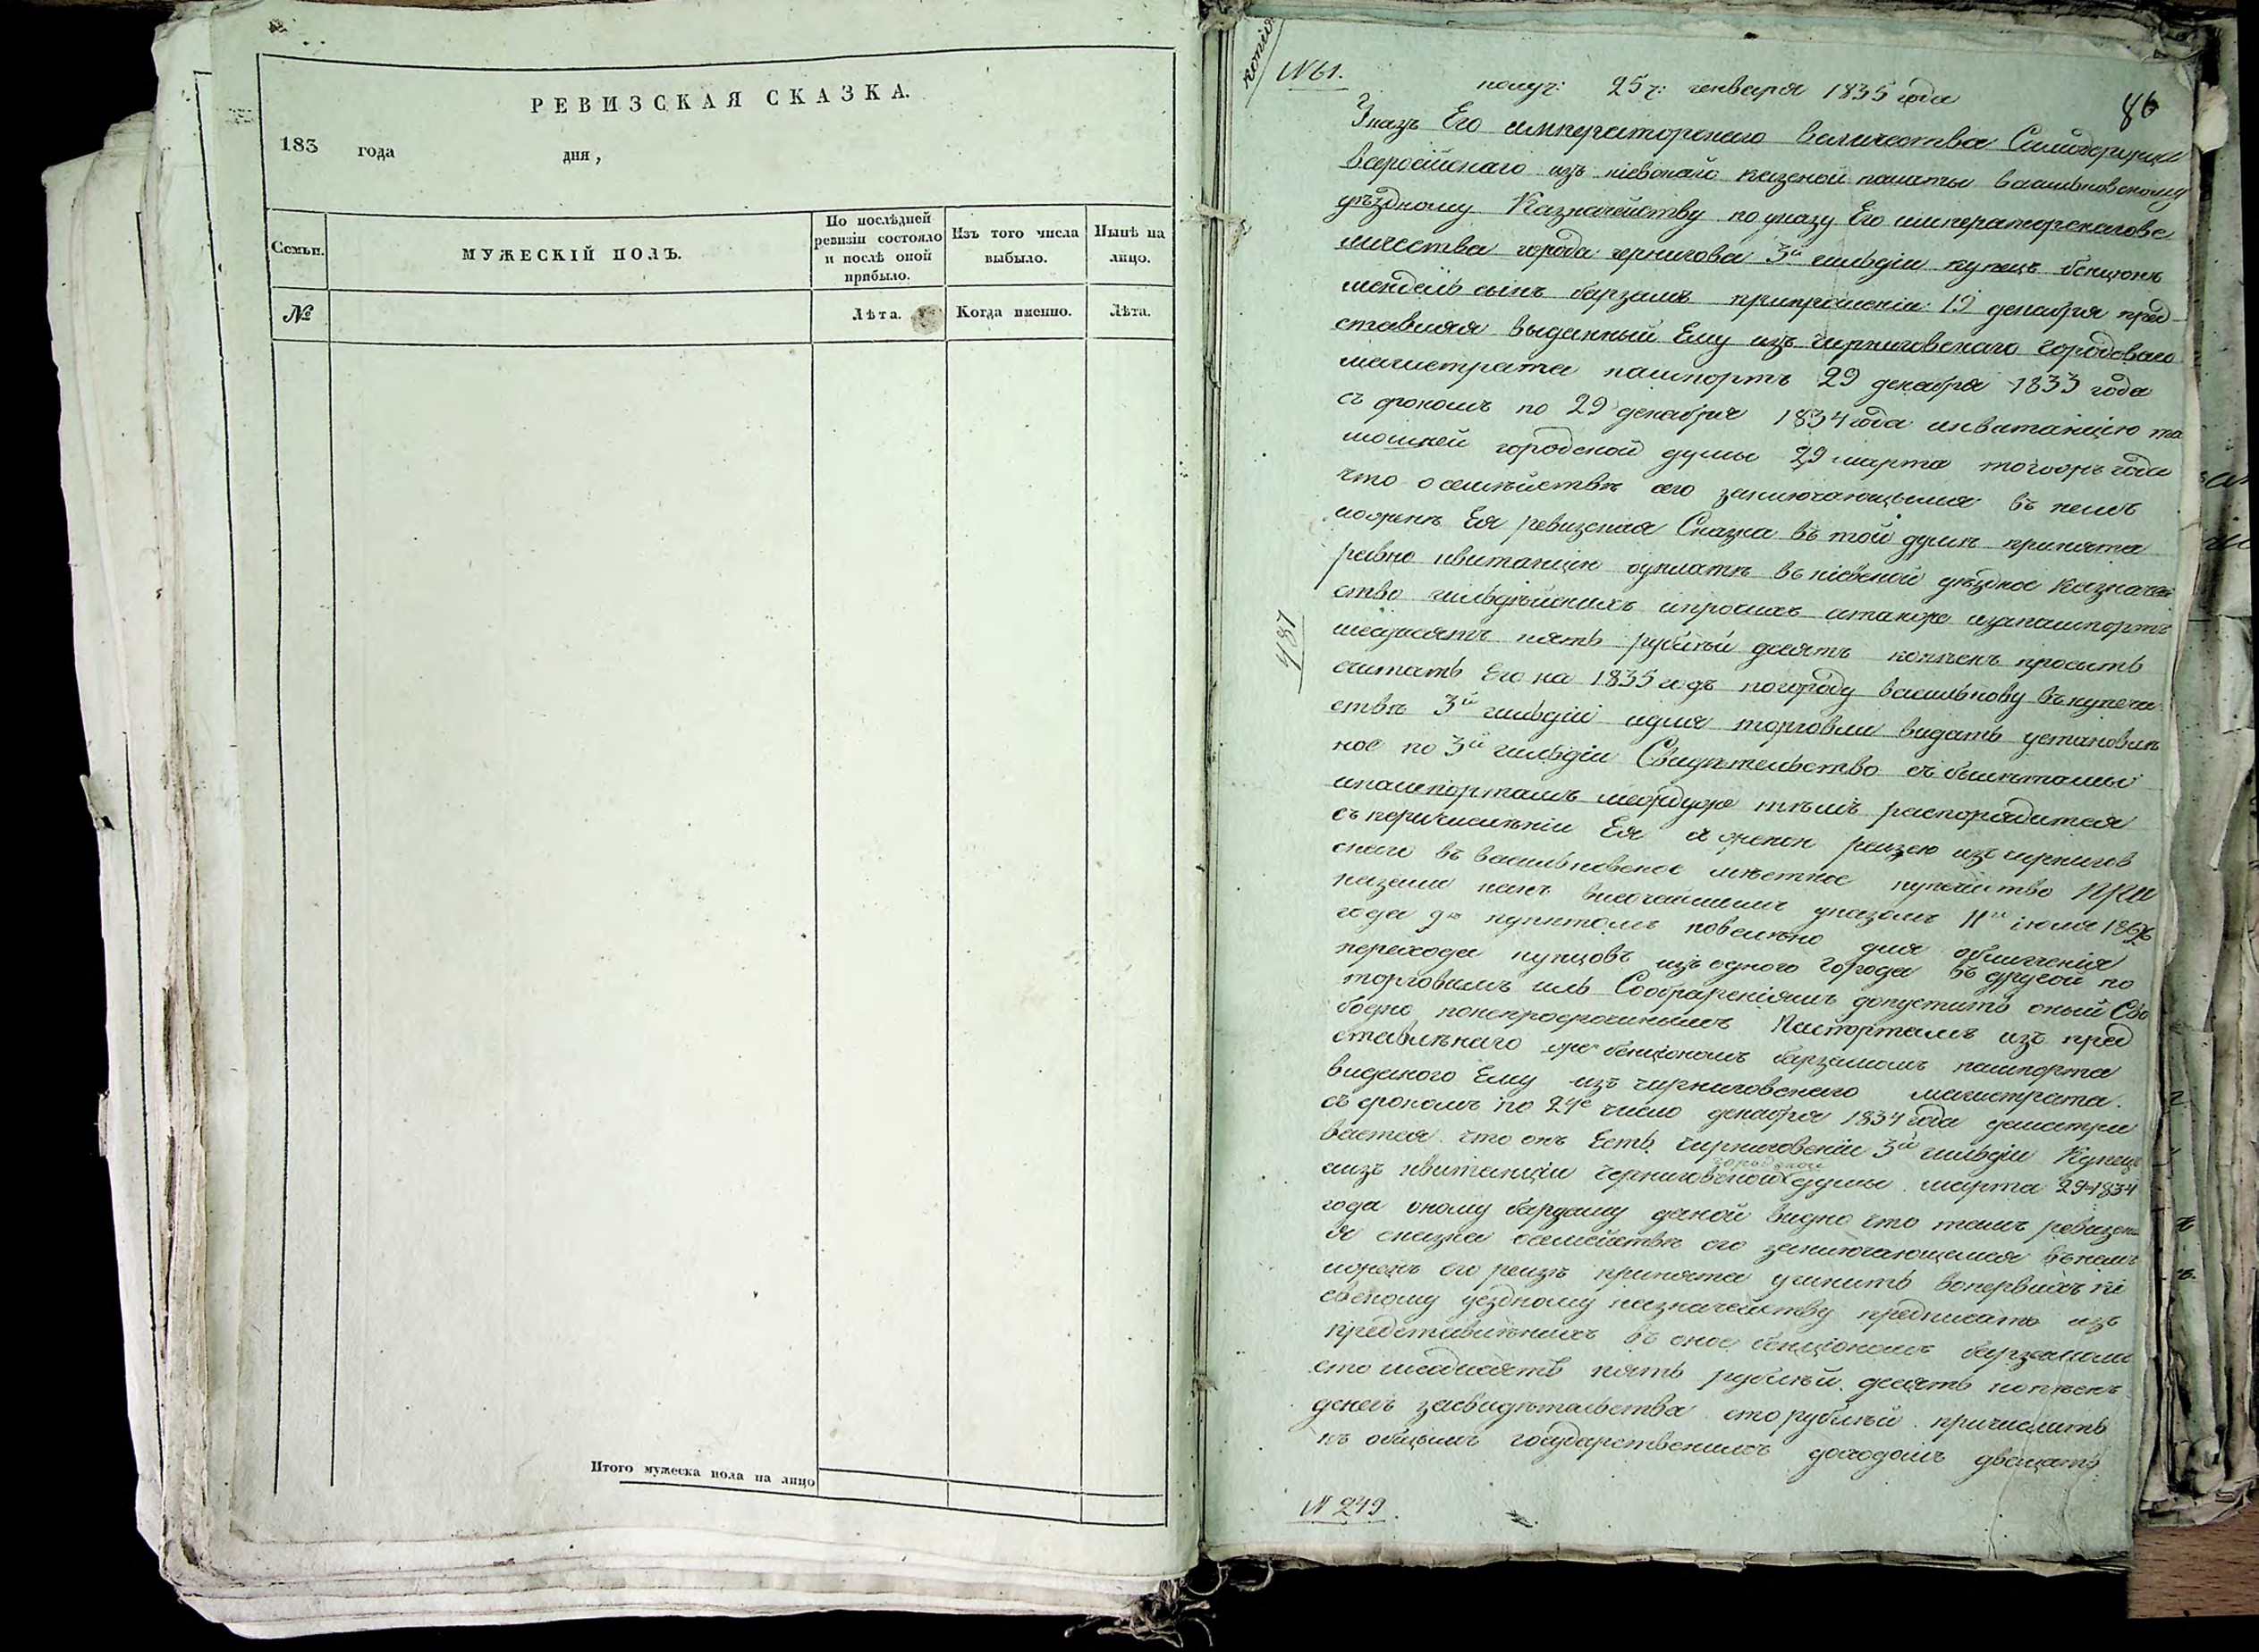 РЕВИЗСКАЯ СКАЗКА.
183 года дня,
Семьи.
МУЖЕСКІЙ ПОЛЪ.
По послѣдней
ревизіи состояло
и послѣ оной
прибыло.
Изъ того числа
выбыло.
Нынѣ на
лицо.
№
Лѣта.
Когда именно.
Лѣта.
Итого мужеска пола на лицо
копія
№61.
получ: 25 ч: генваря 1835 года
86
Указъ Его императорскаго величества Самодержца
Всеросійскаго изъ кіевской казеной палаты васильковскому
уѣздному Казначейству по указу Его императорскагове
личества города чернигова 3й гильдіи купецъ бенционъ
мендель сынъ барзамъ припрошеніи 19 декабря пред
ставляя выданный Ему изъ черниговскаго городоваго
магистрата пашпортъ 29 декабря 1833 года
съ срокомъ по 29 декабря 1834 года иквитанцію та
мошней городской думы 29 марта тогожъ года
что о семѣйствѣ его заключающимся въ немъ
ижене Ея ревизская Сказка въ той думѣ принята
равно квитанцію оуплатѣ въ кіевскій уѣздное Казначей
ство гильдѣйскихъ ипрочихъ атакже изапашпортъ
шесдесятъ пять рублѣй десять копѣекъ проситъ
считать Его на 1835 годъ погороду василькову въкупече
ствѣ 3й гильдіи идля торговли видать установле
ное по 3й гильдіи Свидѣтельство съ билѣтами
ипашпортамъ междуже тѣмъ распорядится
съ перечисленіи Ея изъ чернигов
скаго въ васильковское мѣстное купечество ПРИ
казали какъ височайшимъ указомъ 11го іюля
года 9м пунктомъ повелѣно для облегченія
перехода купцовъ изъ одного города въ другой по
торговымъ ихъ Соображеніямъ допустить оный Сво
бодно понепросрочинымъ Паспортамъ изъ пред
ставлѣнаго бенціономъ барзамомъ пашпорта
виданого Ему изъ черниговскаго магистрата.
съ срокомъ по 29е число декабря 1834 года усматри
вается что онъ Есть черниговскій 3й гильдіи Купецъ
аизъ квитанціи черниговской городской думы марта 29 1834
года оному барзаму даной видно что тамъ ревизска
я сказка осемействѣ его заключающемся въ немъ
принята учинить вопервихъ кі
евскому уездному казначейству предписать изъ
представлѣнихъ въ оное бенціономъ барзамомъ
сто шесдисятъ пять рублѣй десять копѣекъ
денегъ засвидѣтельства сто рублѣй причислить
къ общимъ государственимъ доходамъ двацать
487
№ 249